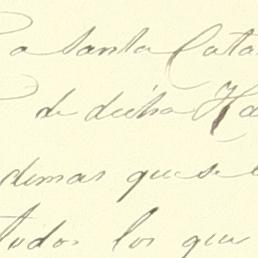 a Santa Cata
de dicha Ha
demas que se
todos los que